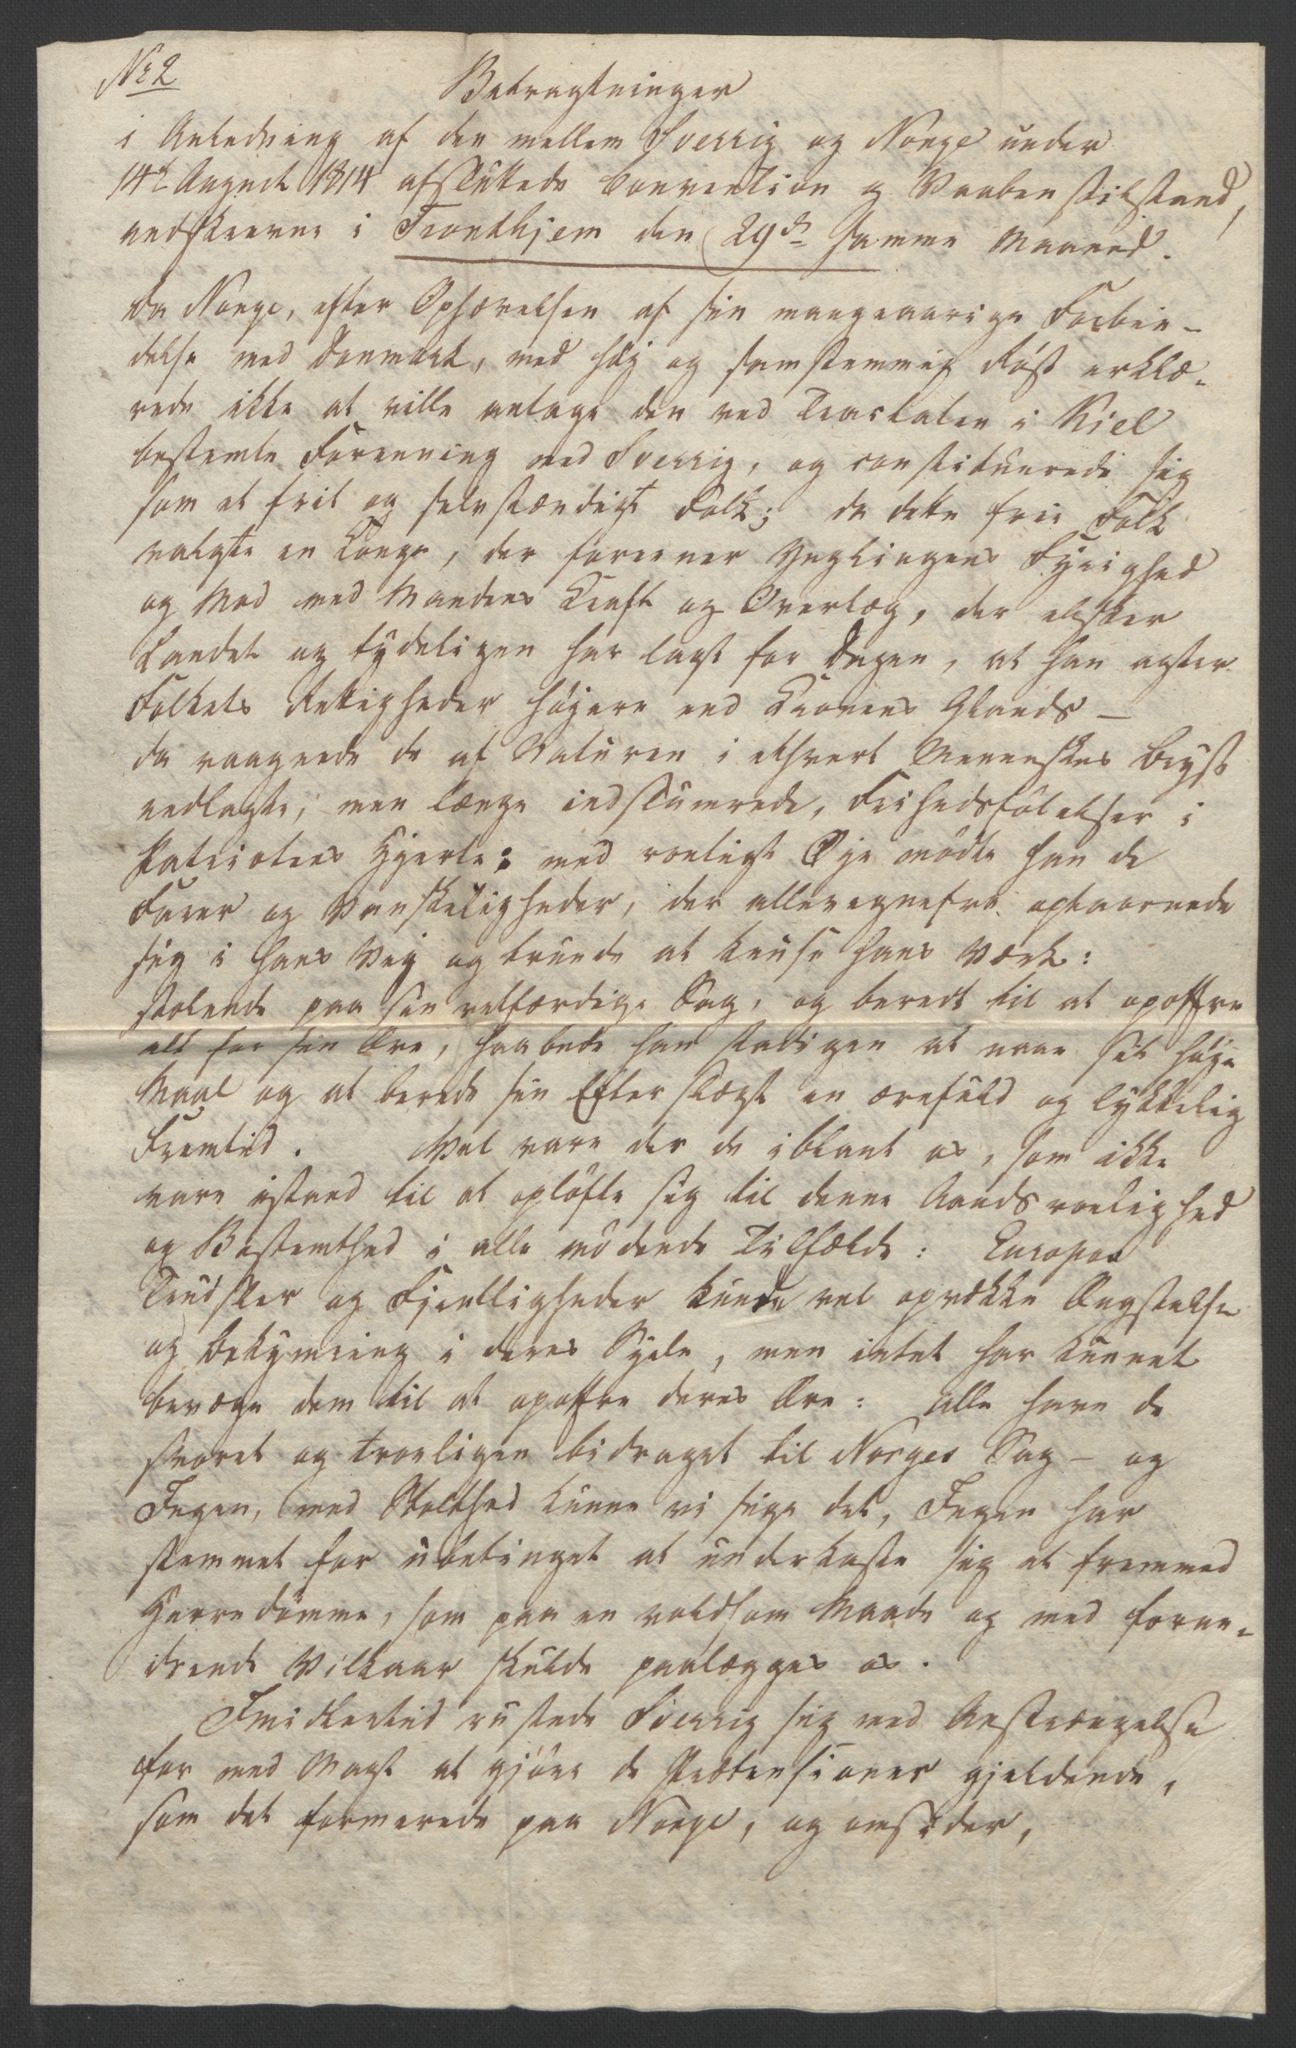 No 2
Betragtninger
i Anledning af den mellem Sverrig og Norge under
14de August 1814 afsluttede Convention og Vaabenstilstand,
nedskrevne i Trondhjem den 29de samme Maaned.
Da Norge, efter Ophævelsen af sin mangeaarige Forbin-
delse med Danmark, med høj og samstemmig Røst erklæ-
rede ikke at ville antage den ved Tractaten i Kiel
bestemte Forening med Sverrig, og constituerede sig
som et frit og selvstændigt Folk; da dette frie Folk
valgte en Konge, der forener Ynglingens Fyrighed
og Mod med Mandens Kraft og Overlæg, der elsker
Landet og tydeligen har lagt for Dagen, at han agter
Folkets Rettigheder høyere end Kronens Glands –
da vaagnede de af Naturen i ethvert Menneskes Bryst
nedlagte, men længe indslumrede, Frihedsfølelser i
Patriotens Hjerte; med roeligt Øje mødte han de
Farer og Vanskeligheder, der allevegnefra optaarnede
sig i hans Vej og truede at knuse hans Værk:
stolende paa sin retfærdige Sag, og beredt til at opoffre
alt for sin Ære, haabede han stadigen at naae sit høje
Maal og at berede sin Efterslægt en ærefuld og lykkelig
Fremtid. Vel vare der de iblant os, som ikke
vare istand til at opløfte sig til denne Aands roelighed
og Bestemthed i alle mødende Tilfælde: Europas
Trudsler og Fjentligheder kunde vel opvække Ængstelse
og Bekymring i deres Sjele, men intet har kunnet
bevæge dem til at opoffre deres Ære: alle have de
svoret og troeligen bidraget til Norges Sag – og
Ingen, med Stolthed kunne vi sige det, Ingen har
stemmet for ubetinget at underkaste sig et fremmed
Herredømme, som paa en voldsom Maade og med forne-
drende Vilkaar skulde paalægges os.
Imidlertid rustede Sverrig sig med Anstrængelse
for med Magt at gjøre de Prætensioner gjeldende,
som det formerede paa Norge, og omsider,